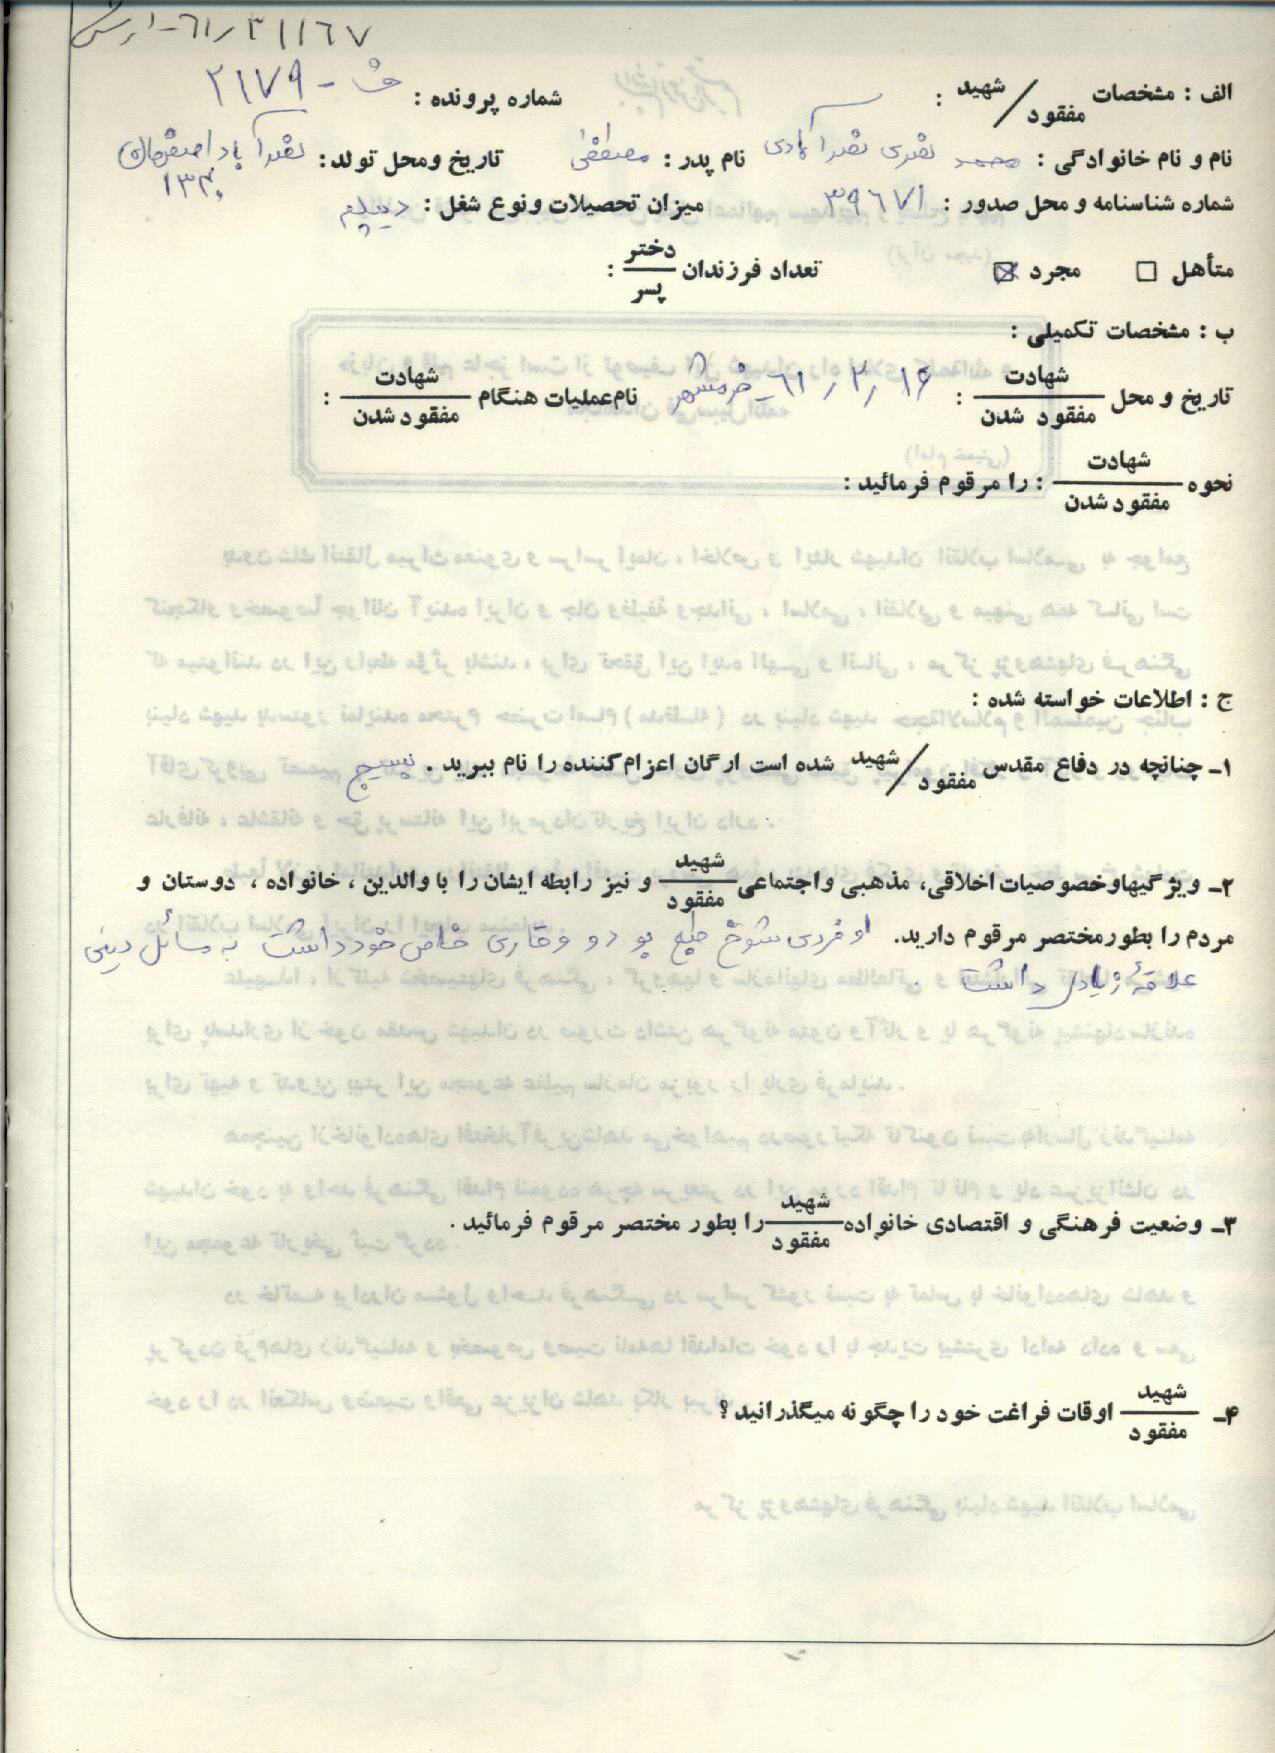 ۶۱/۳۱۱۶۷-ارتش
الف : مشخصات شهید / مفقود :
شماره پرونده : خ - ۲۱۷۹
نام و نام خانوادگی : محمد نصری نصرآبادی نام پدر : مصطفی تاریخ ومحل تولد : نصرآباد اصفهان
۱۳۴۰
شماره شناسنامه و محل صدور : ۳۹۶۷۱ میزان تحصیلات ونوع شغل : دیپلم
متأهل □ مجرد ☒ تعداد فرزندان دختر / پسر :
ب : مشخصات تکمیلی :
تاریخ و محل شهادت / مفقود شدن : ۶۱/۳/۱۶ - خرمشهر نام عملیات هنگام شهادت / مفقود شدن :
نحوه شهادت / مفقود شدن : را مرقوم فرمائید :
ج : اطلاعات خواسته شده :
۱ـ چنانچه در دفاع مقدس شهید / مفقود شده است ارگان اعزام کننده را نام ببرید . بسیج
۲ـ ویژگیها وخصوصیات اخلاقی، مذهبی واجتماعی شهید / مفقود و نیز رابطه ایشان را با والدین ، خانواده ، دوستان و
مردم را بطور مختصر مرقوم دارید. او فردی شوخ طبع بود و وقاری خاص خود داشت به مسائل دینی
علاقهٔ زیادی داشت .
۳ـ وضعیت فرهنگی و اقتصادی خانواده شهید / مفقود را بطور مختصر مرقوم فرمائید .
۴ـ شهید / مفقود اوقات فراغت خود را چگونه میگذرانید ؟